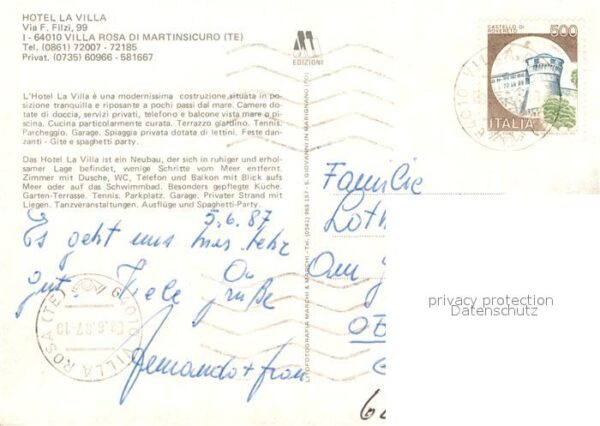 HOTEL LA VILLA
Via F. Filzi, 99
I - 64010 VILLA ROSA DI MARTINSICURO (TE)
Tel. (0861) 72007 - 72185
Privat. (0735) 60966 - 581667
EDIZIONI
CASTELLO DI ROVERETO
500
ITALIA
L'Hotel La Villa è una modernissima costruzione situata in po-
sizione tranquilla e riposante a pochi passi dal mare. Camere do-
tate di doccia, servizi privati, telefono e balcone vista mare o pi-
scina. Cucina particolarmente curata. Terrazzo giardino. Tennis.
Parcheggio. Garage. Spiaggia privata dotata di lettini. Feste dan-
zanti - Gite e spaghetti party.
Das Hotel La Villa ist ein Neubau, der sich in ruhiger und erhol-
samer Lage befindet, wenige Schritte vom Meer entfernt.
Zimmer mit Dusche, WC, Telefon und Balkon mit Blick aufs
Meer oder auf das Schwimmbad. Besonders gepflegte Küche.
Garten-Terrasse. Tennis. Parkplatz. Garage. Privater Strand mit
Liegen. Tanzveranstaltungen. Ausflüge und Spaghetti-Party.
5.6.87
Es geht uns hier sehr
gut. Viele Grüße
64010 VILLA ROSA (TE)
LITOFOTOGRAFIA MARCHI & MARCHI - Tel. (0541) 963 157 - S. GIOVANNI IN MARIGNANO
Familie
Loth
Am
privacy protection
Datenschutz